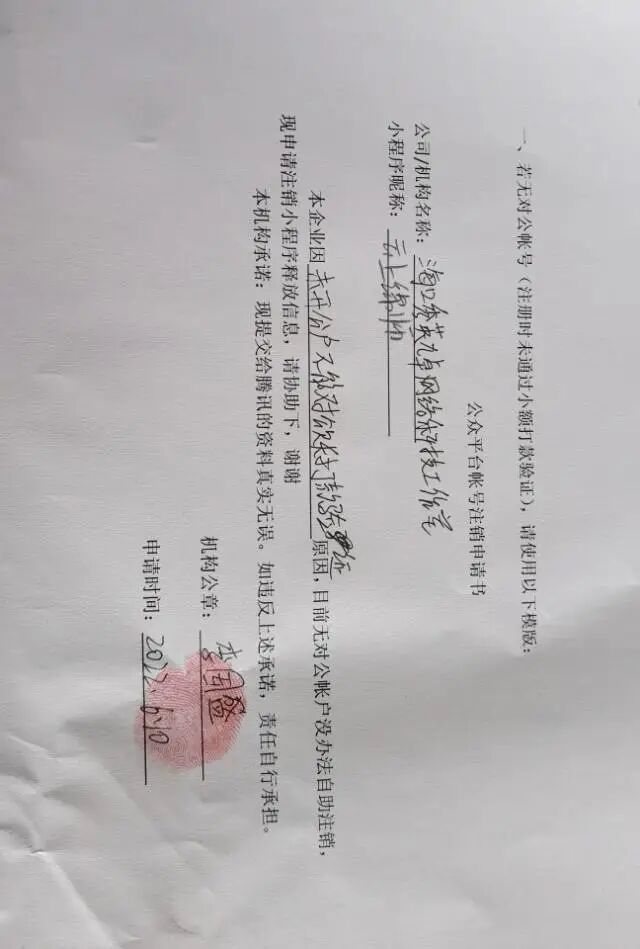 一、若无对公帐号（注册时未通过小额打款验证），请使用以下模版：
公众平台帐号注销申请书
公司/机构名称：海口秀英九卓网络科技工作室
小程序昵称：云上锦顺
本企业因未开公户不能对公打款验证原因，目前无对公帐户没办法自助注销，
现申请注销小程序释放信息，请协助下，谢谢
本机构承诺：现提交给腾讯的资料真实无误。如违反上述承诺，责任自行承担。
机构公章：李国盛
申请时间：2022.6.10